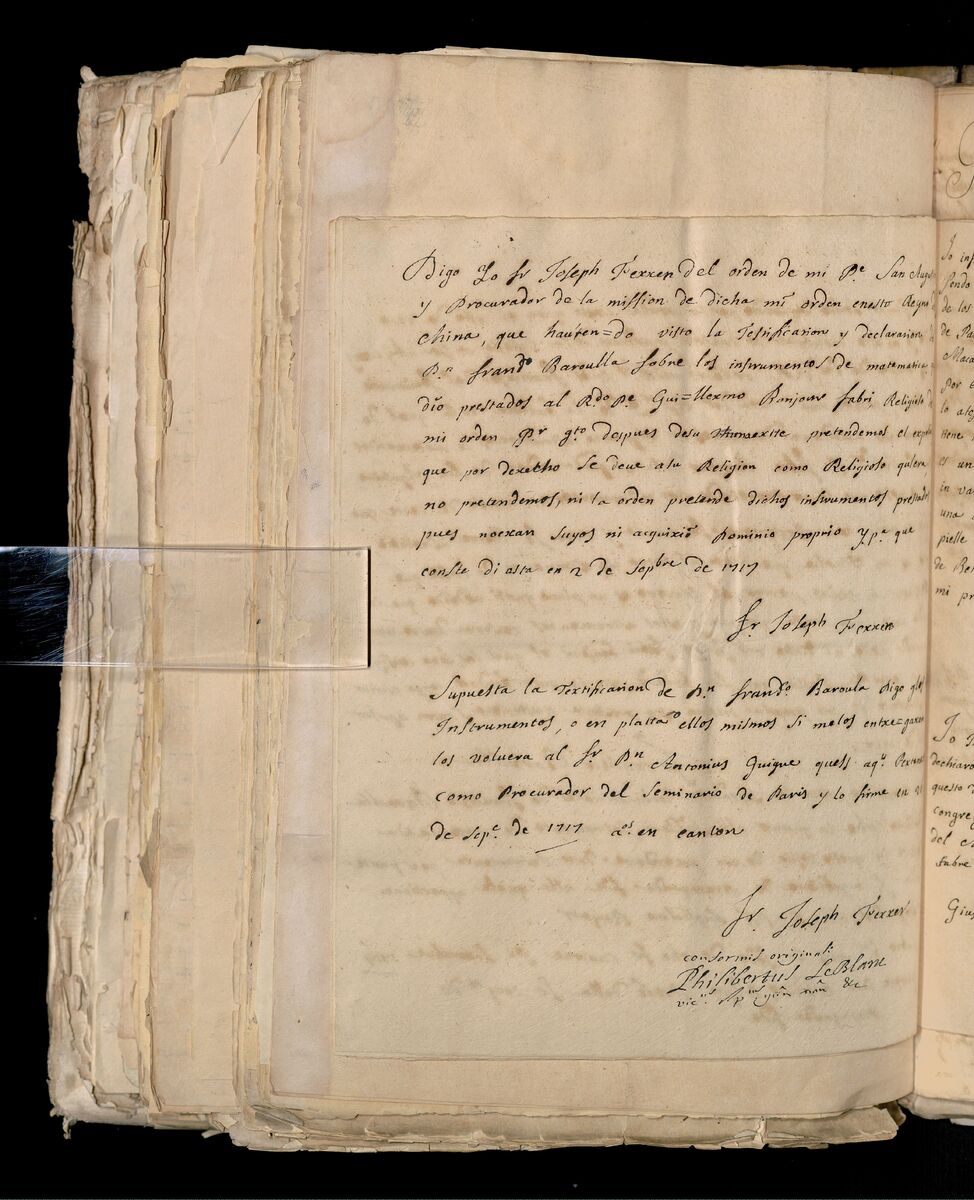 Digo Yo fr Joseph Ferrer del orden de mi Pe San Augu
y Procurador de la mission de dicha mi orden enesto Reyno
china, que hauren=do visto la Testificacion y declaracion
Dn franco Baroulla sobre los instrumentos de matematica
dio prestados al Rdo Pe Gui=llermo Bonjour fabri Religioso
mi orden despues desu pretendemos el
que por derecho se deve asu Religion como Religioso
no pretendemos, ni la orden pretende dichos instrumentos prestados
pues noeran suyos ni acquixio Dominio proprio Y pa que
conste di asta en 2 de Sepbre de 1717
fr. Joseph Ferrer
Supuesta la Textificacion de Dn franco Baroula Digo
Instrumentos, o en platta o ellos mismos si melos entre=garen
los volvera al sr Dn Antonius Guigue
como Procurador del Seminario de Paris y lo firme en
de Sepe de 1717 as en canton
fr. Joseph Ferrer
conformis originali
Philibertus LeBlanc
&c
Jo
de
de
Maca
Por
in
una
pielle
de
mi
Jo
dichiaro
questo
congre
del
subre
Gius